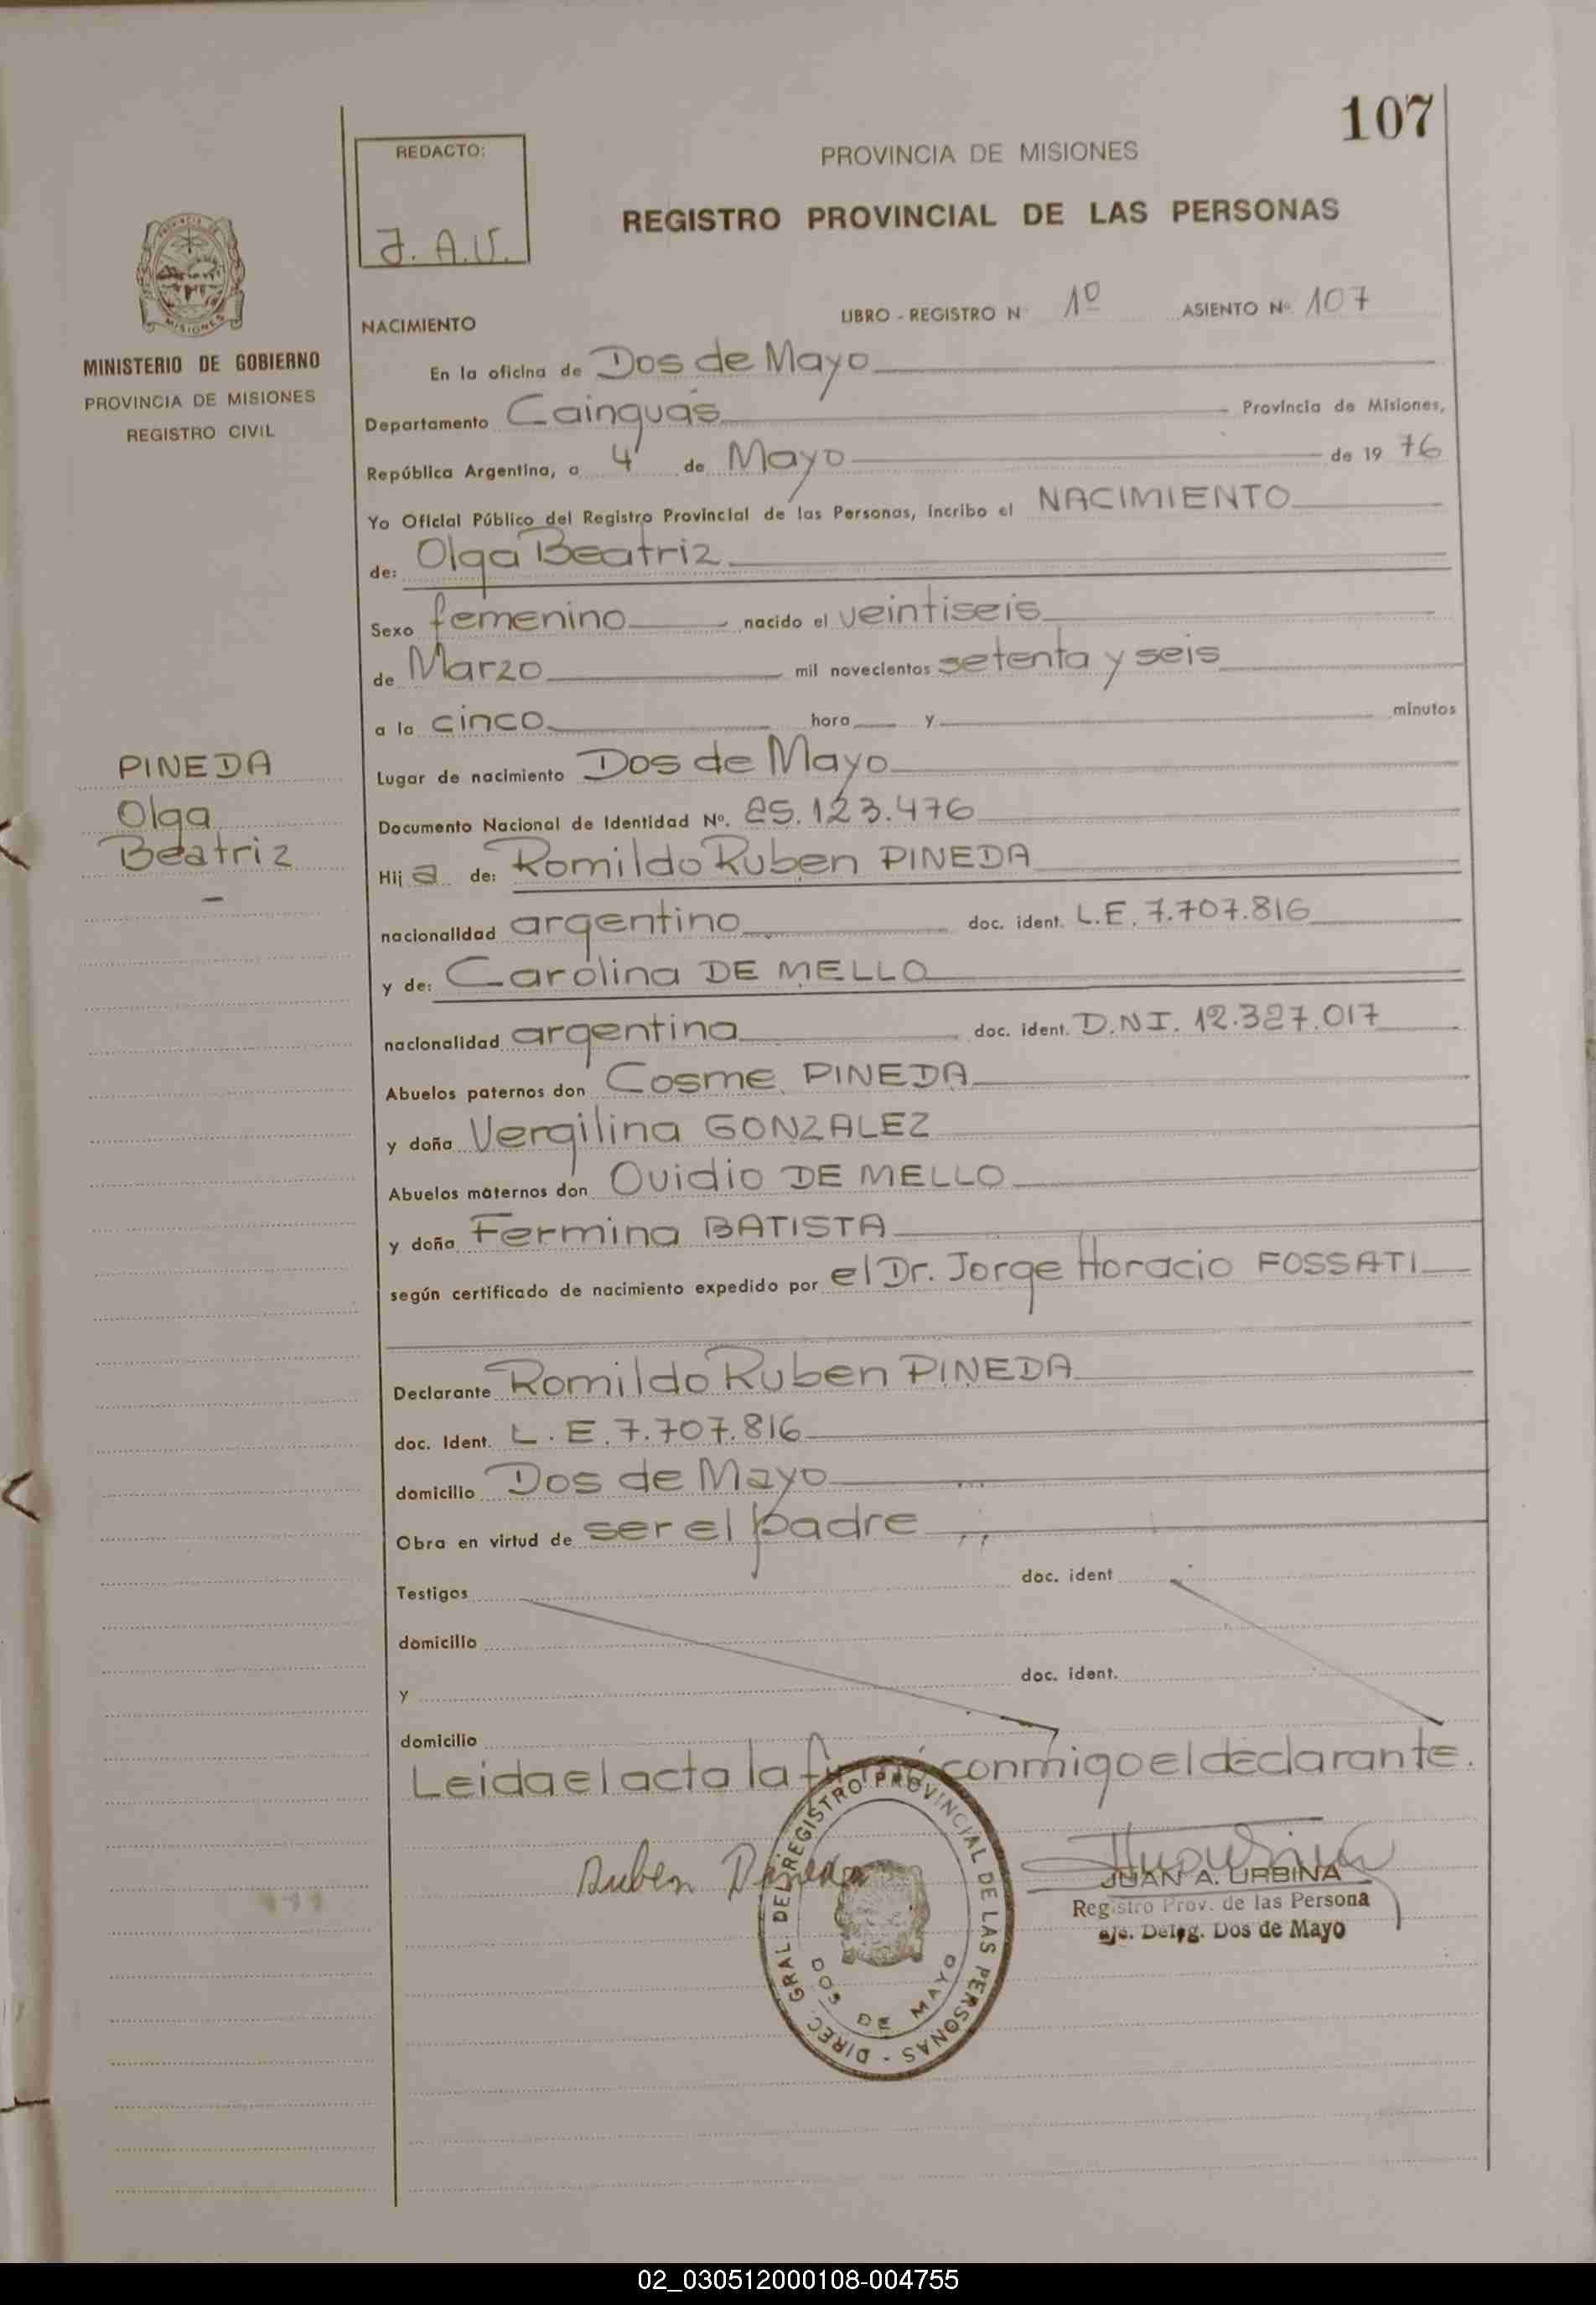 107
REDACTO:
J. A.U.
PROVINCIA DE MISIONES
REGISTRO PROVINCIAL DE LAS PERSONAS
MISIONES
MINISTERIO DE GOBIERNO
PROVINCIA DE MISIONES
REGISTRO CIVIL
NACIMIENTO LIBRO - REGISTRO N 1º ASIENTO Nº 107
En la oficina de Dos de Mayo
Departamento Cainguás Provincia de Misiones,
República Argentina, a 4 de Mayo de 19 76
Yo Oficial Público del Registro Provincial de las Personas, incribo el NACIMIENTO
de: Olga Beatriz
Sexo femenino nacido el veintiseis
de Marzo mil novecientos setenta y seis
a la cinco hora y minutos
PINEDA
Olga
Beatriz
Lugar de nacimiento Dos de Mayo
Documento Nacional de Identidad Nº. 25.123.476
Hij a de: Romildo Ruben PINEDA
nacionalidad argentino doc. ident. L.E. 7.707.816
y de: Carolina DE MELLO
nacionalidad argentina doc. ident. D.N.I. 12.327.017
Abuelos paternos don Cosme PINEDA
y doña Vergilina GONZALEZ
Abuelos maternos don Ovidio DE MELLO
y doña Fermina BATISTA
según certificado de nacimiento expedido por el Dr. Jorge Horacio FOSSATI
Declarante Romildo Ruben PINEDA
doc. Ident. L.E. 7.707.816
domicilio Dos de Mayo
Obra en virtud de ser el padre
Testigos doc. ident
domicilio
y doc. ident.
domicilio
Leida el acta la firmó conmigo el declarante.
Ruben Pineda
DIREC GRAL DEL REGISTRO PROVINCIAL DE LAS PERSONAS -
DOS DE MAYO
JUAN A. URBINA
Registro Prov. de las Persona
Deleg. Dos de Mayo
02_030512000108-004755